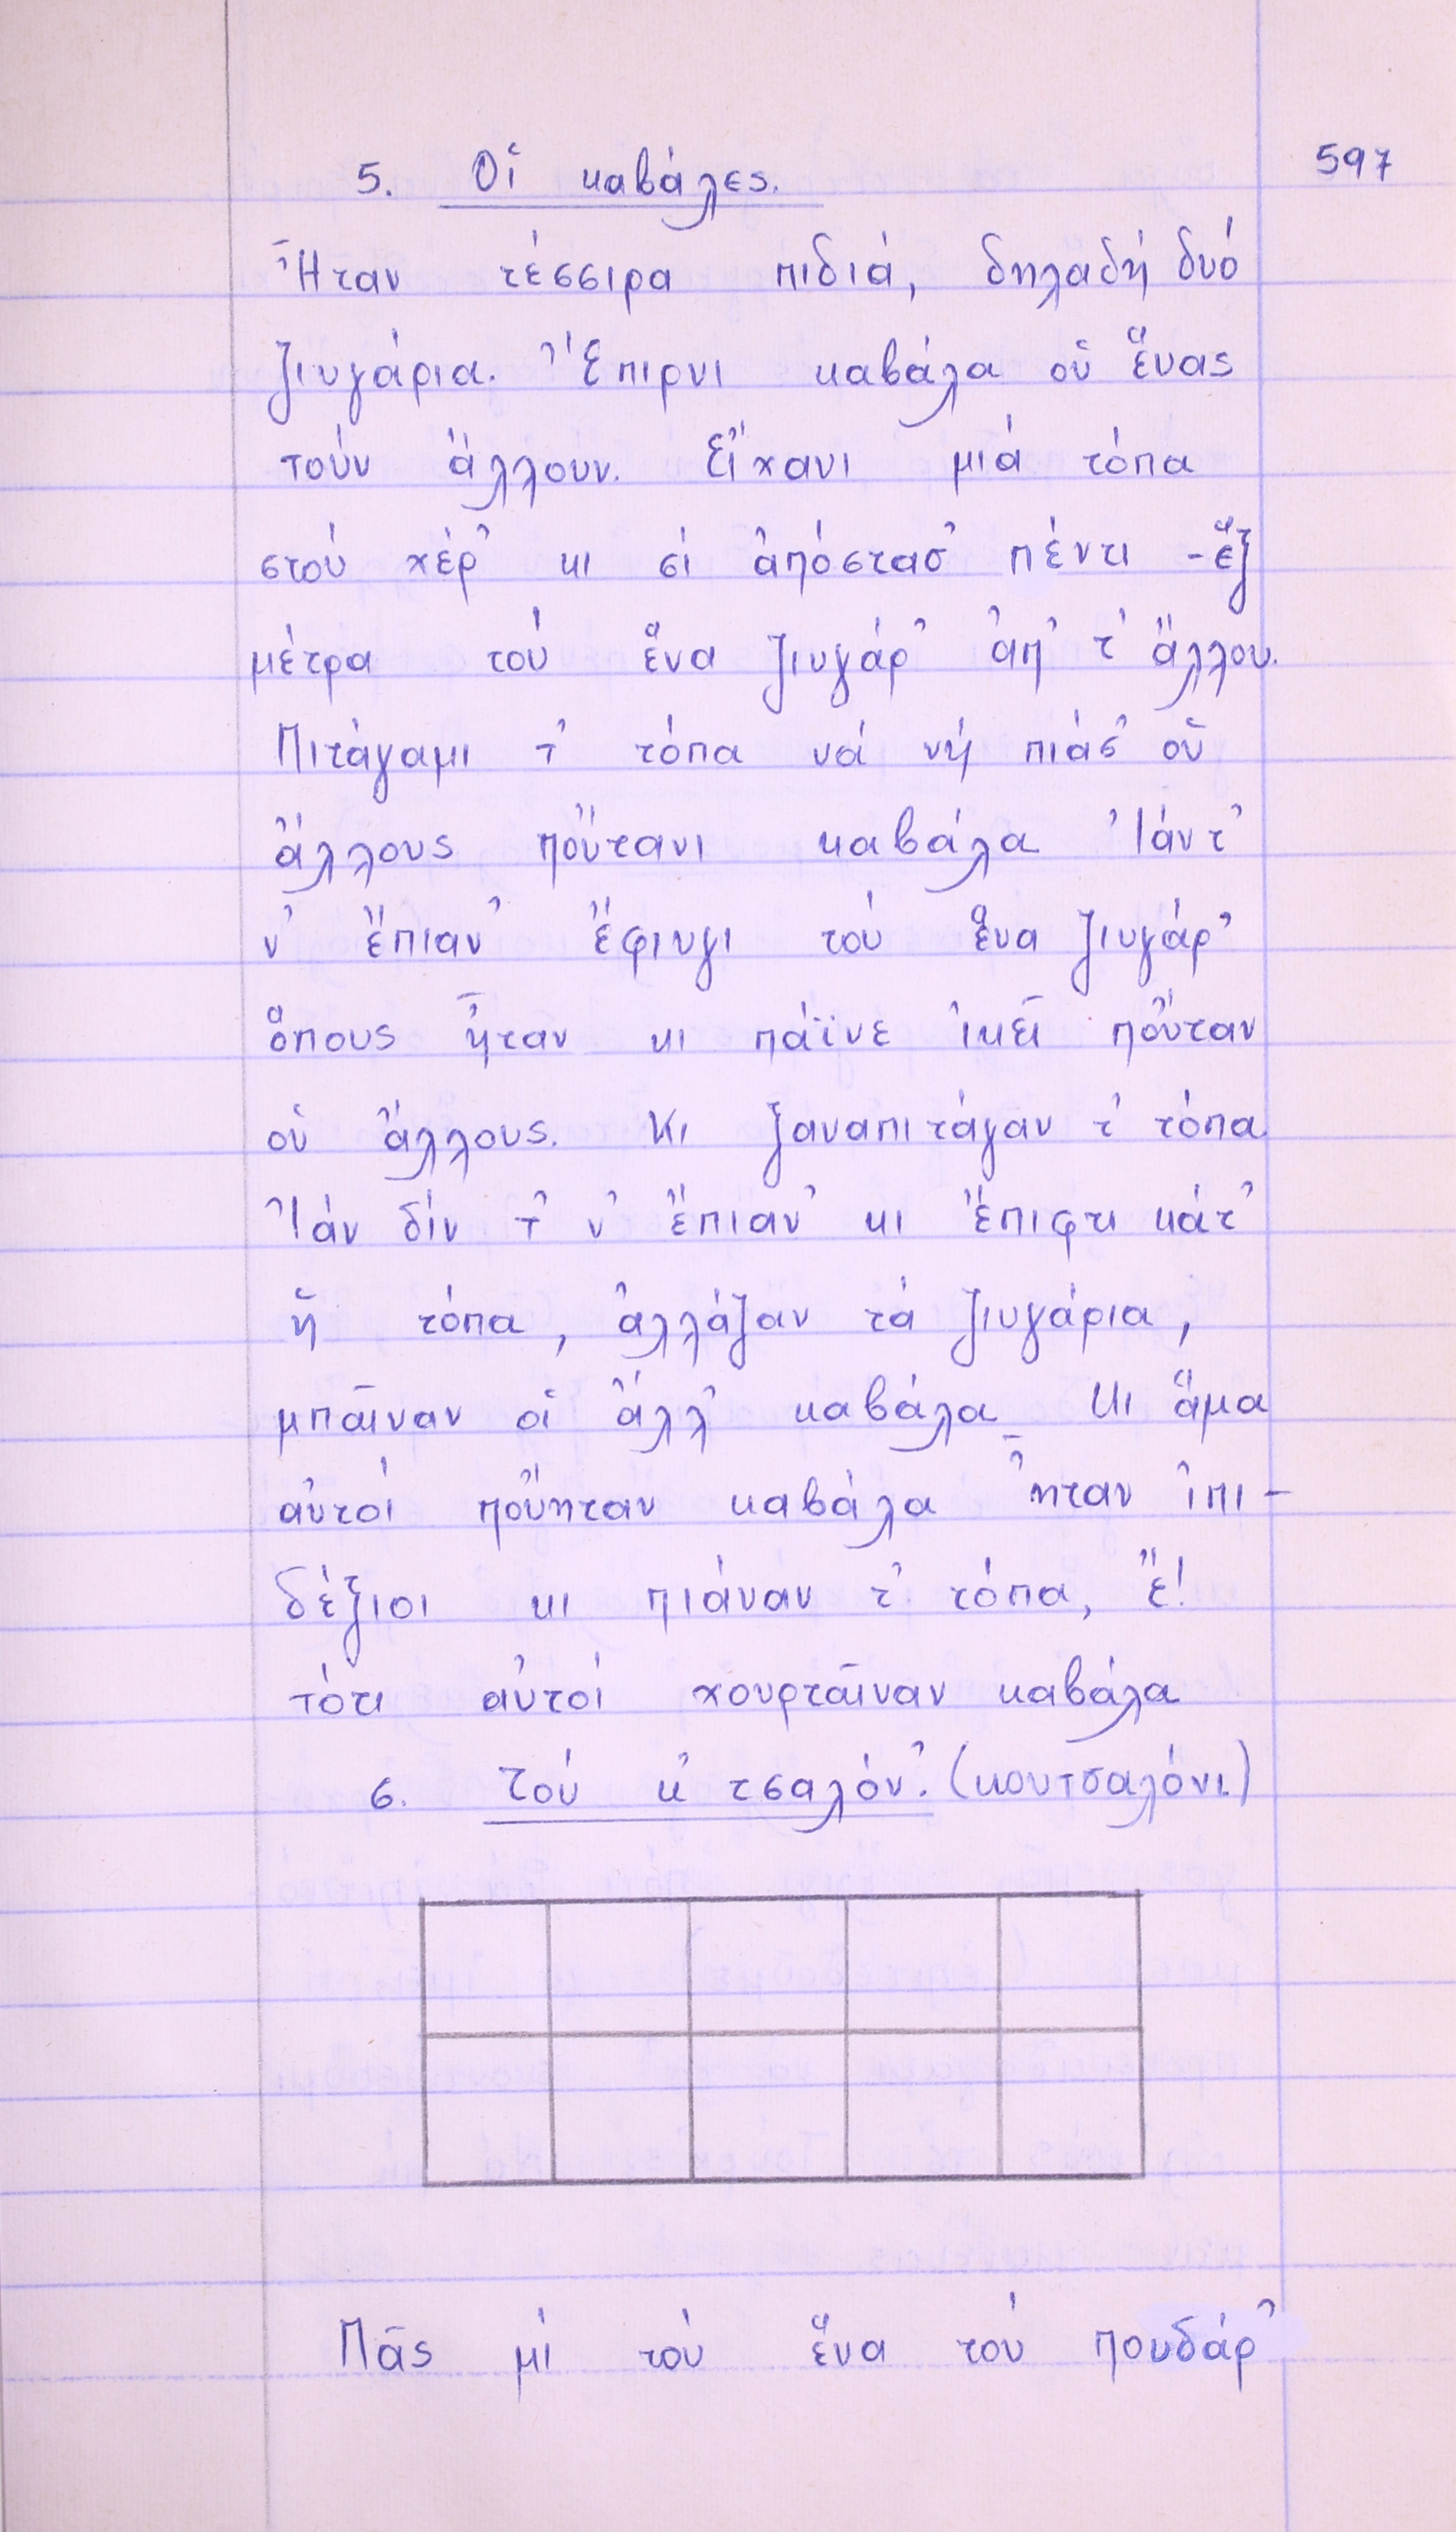 597
5. Οἱ καβάλες.
Ἦταν τέσσιρα πιδιά, δηλαδή δυό
ζιυγάρια. Ἔπιρνι καβάλα οὑ ἕνας
τούν ἄλλουν. Εἴχανι μιά τόπα
στού χέρ᾿ κι σί ἀπόστασ᾿ πέντι -ἕξ
μέτρα τού ἕνα ζιυγάρ᾿ ἀπ᾿ τ᾿ ἄλλου.
Πιτάγαμι τ᾿ τόπα νά νή πιάσ᾿ οὑ
ἄλλους ποὔτανι καβάλα Ἰάν τ᾿
ν᾿ ἔπιαν᾿ ἔφιυγι τού ἕνα ζιυγάρ᾿
ὅπους ἦταν κι πάϊνε ἰκεῖ ποὔταν
οὑ ἄλλους. Κι ξαναπιτάγαν τ᾿ τόπα.
Ἰάν δίν τ᾿ ν᾿ ἔπιαν᾿ κι ἔπιφτι κάτ᾿
ἡ τόπα, ἀλλάζαν τά ζιυγάρια,
μπαῖναν οἱ ἄλλ᾿ καβάλα. Κι ἅμα
αὐτοί ποὔηταν καβάλα ἦταν ἰπι-
δέξιοι κι πιάναν τ᾿ τόπα, ἔ!
τότι αὐτοί χουρταῖναν καβάλα
6. Τού κ᾿ τσαλόν᾿. (κουτσαλόνι.)
Πᾶς μί τού ἕνα τού πουδάρ᾿